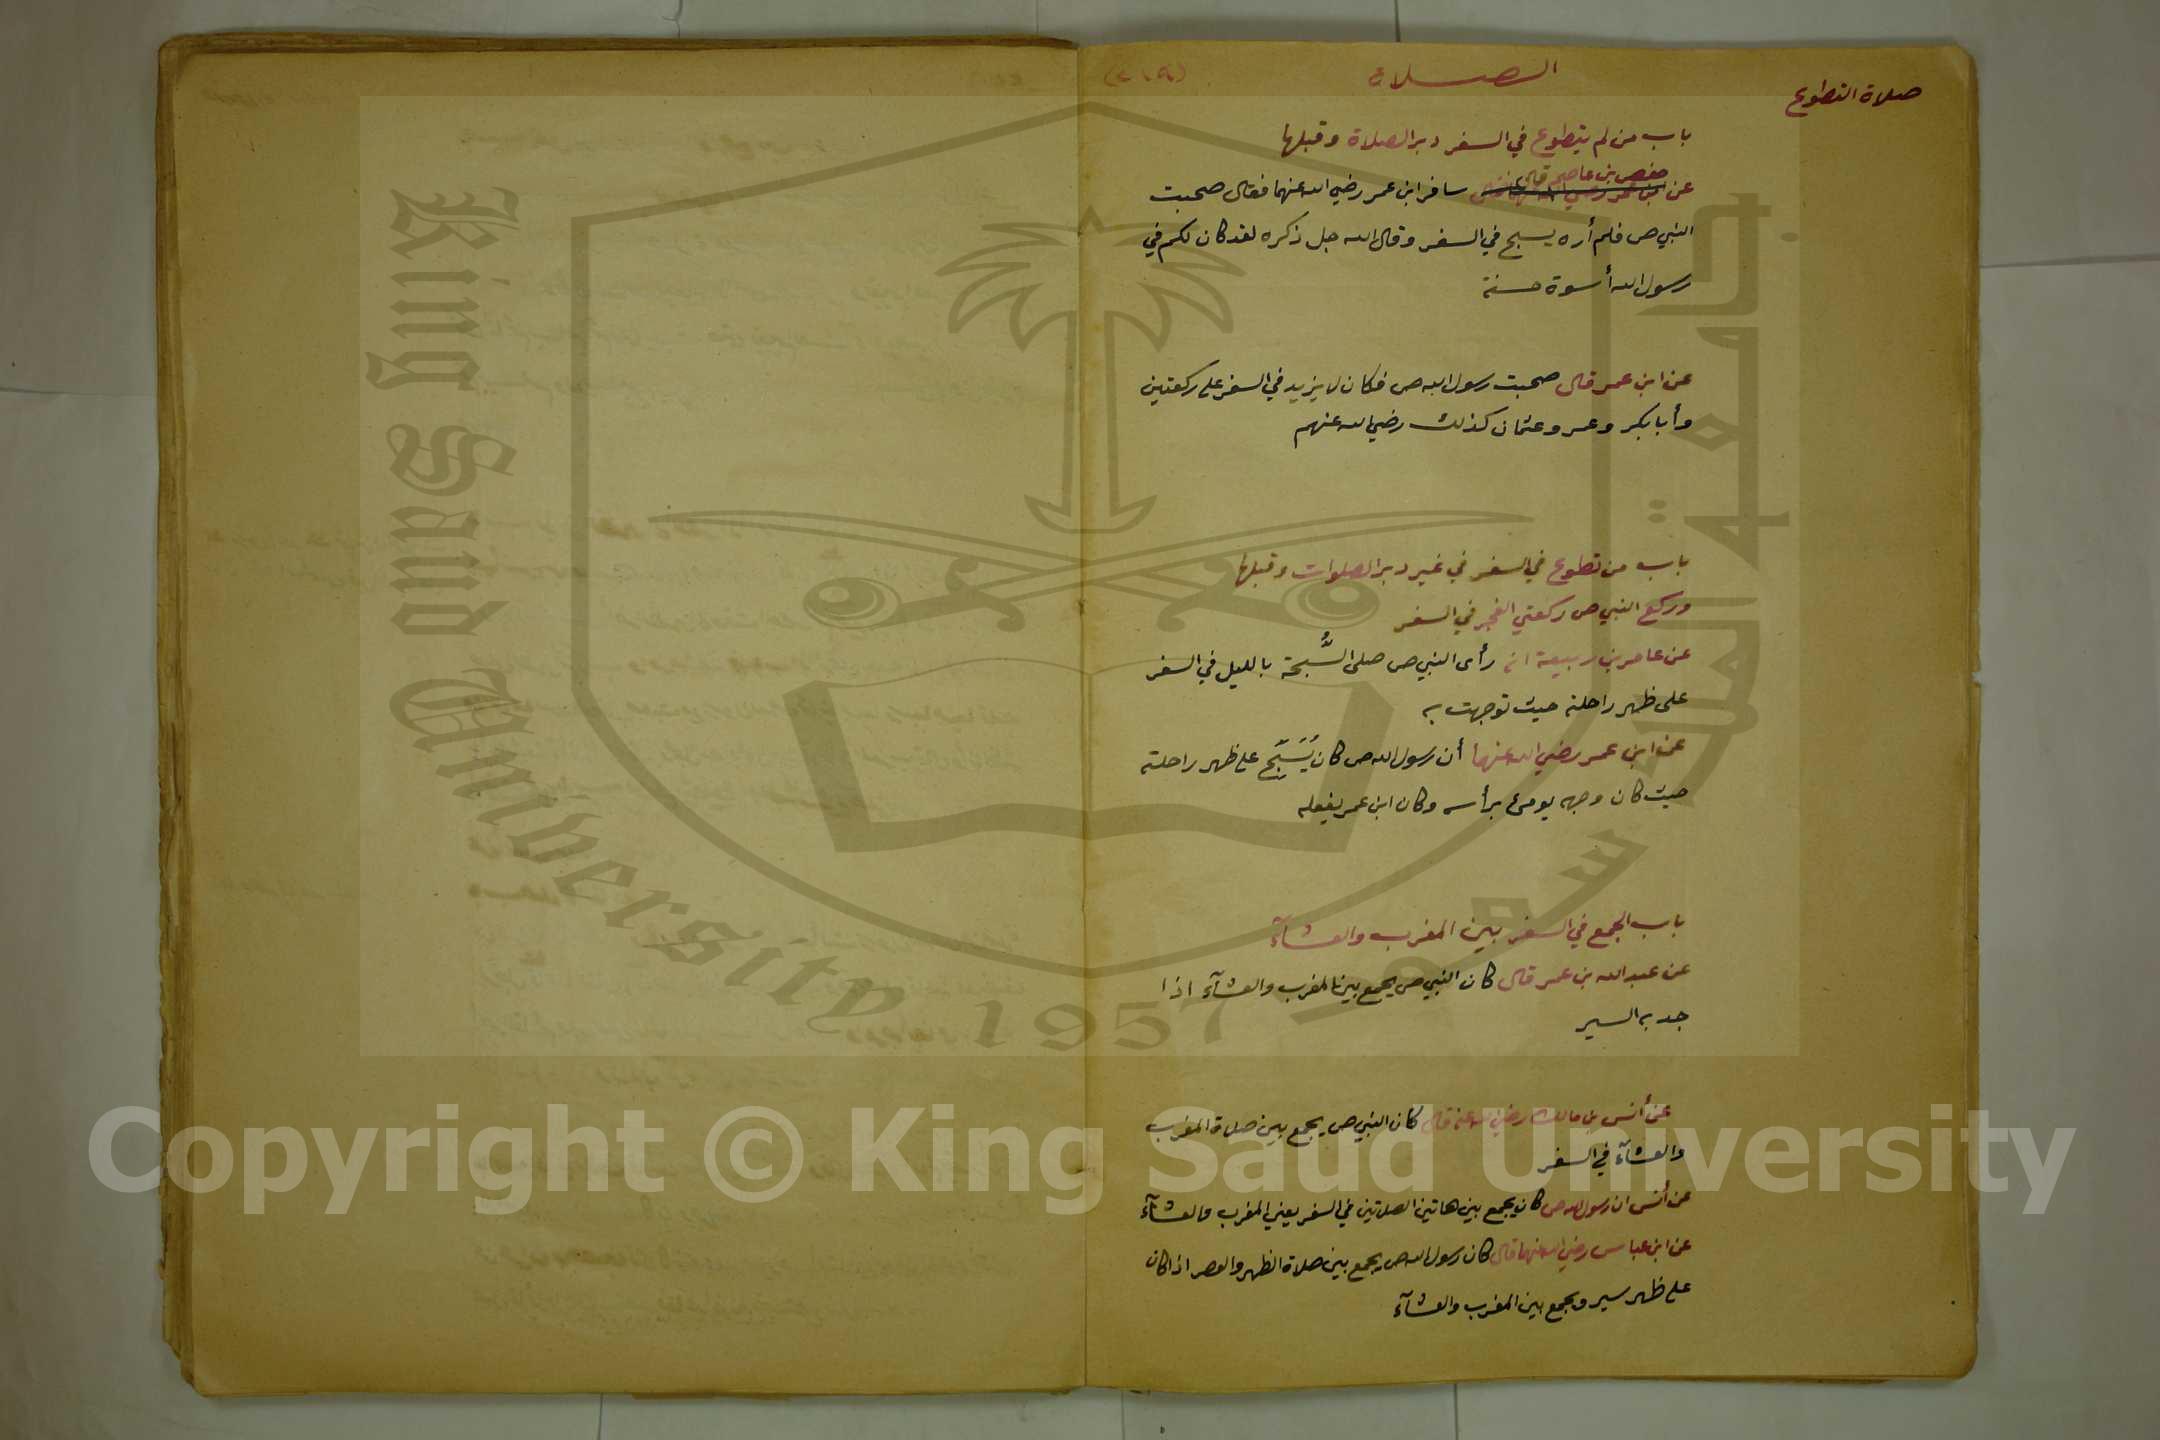 صلاة التطوع
الصلاة
(٢١٩)
باب من لم يتطوع في السفر دبر الصلاة وقبلها
حفص بن عاصم قال
عن ابن عمر رضي الله عنهما قال سافر ابن عمر رضي الله عنهما فقال صحبت
النبي ص فلم أره يسبح في السفر وقال الله جل ذكره لقد كان لكم في
رسول الله أسوة حسنة
عن ابن عمر قال صحبت رسول الله ص فكان لا يزيد في السفر على ركعتين
وأبا بكر وعمر وعثمان كذلك رضي الله عنهم
باب من تطوع في السفر في غير دبر الصلوات وقبلها
وركع النبي ص ركعتي الفجر في السفر
عن عامر بن ربيعة انه رأى النبي ص صلى السُّبحة بالليل في السفر
على ظهر راحلته حيث توجهت به
عن ابن عمر رضي الله عنهما أن رسول الله ص كان يُسَبِّح على ظهر راحلته
حيث كان وجهه يومئ برأسه وكان ابن عمر يفعله
باب الجمع في السفر بين المغرب والعشآء
عن عبد الله بن عمر قال كان النبي ص يجمع بين المغرب والعشآء اذا
جد به السير
عن أنس بن مالك رضي الله عنه قال كان النبي ص يجمع بين صلاة المغرب
والعشآء في السفر
عن أنس ان رسول الله ص كان يجمع بين هاتين الصلاتين في السفر يعني المغرب والعشآء
عن ابن عباس رضي الله عنهما قال كان رسول الله ص يجمع بين صلاة الظهر والعصر اذا كان
على ظهر سير ويجمع بين المغرب والعشآء
King Saud University
1957
جامعة الملك سعود
Copyright © King Saud University